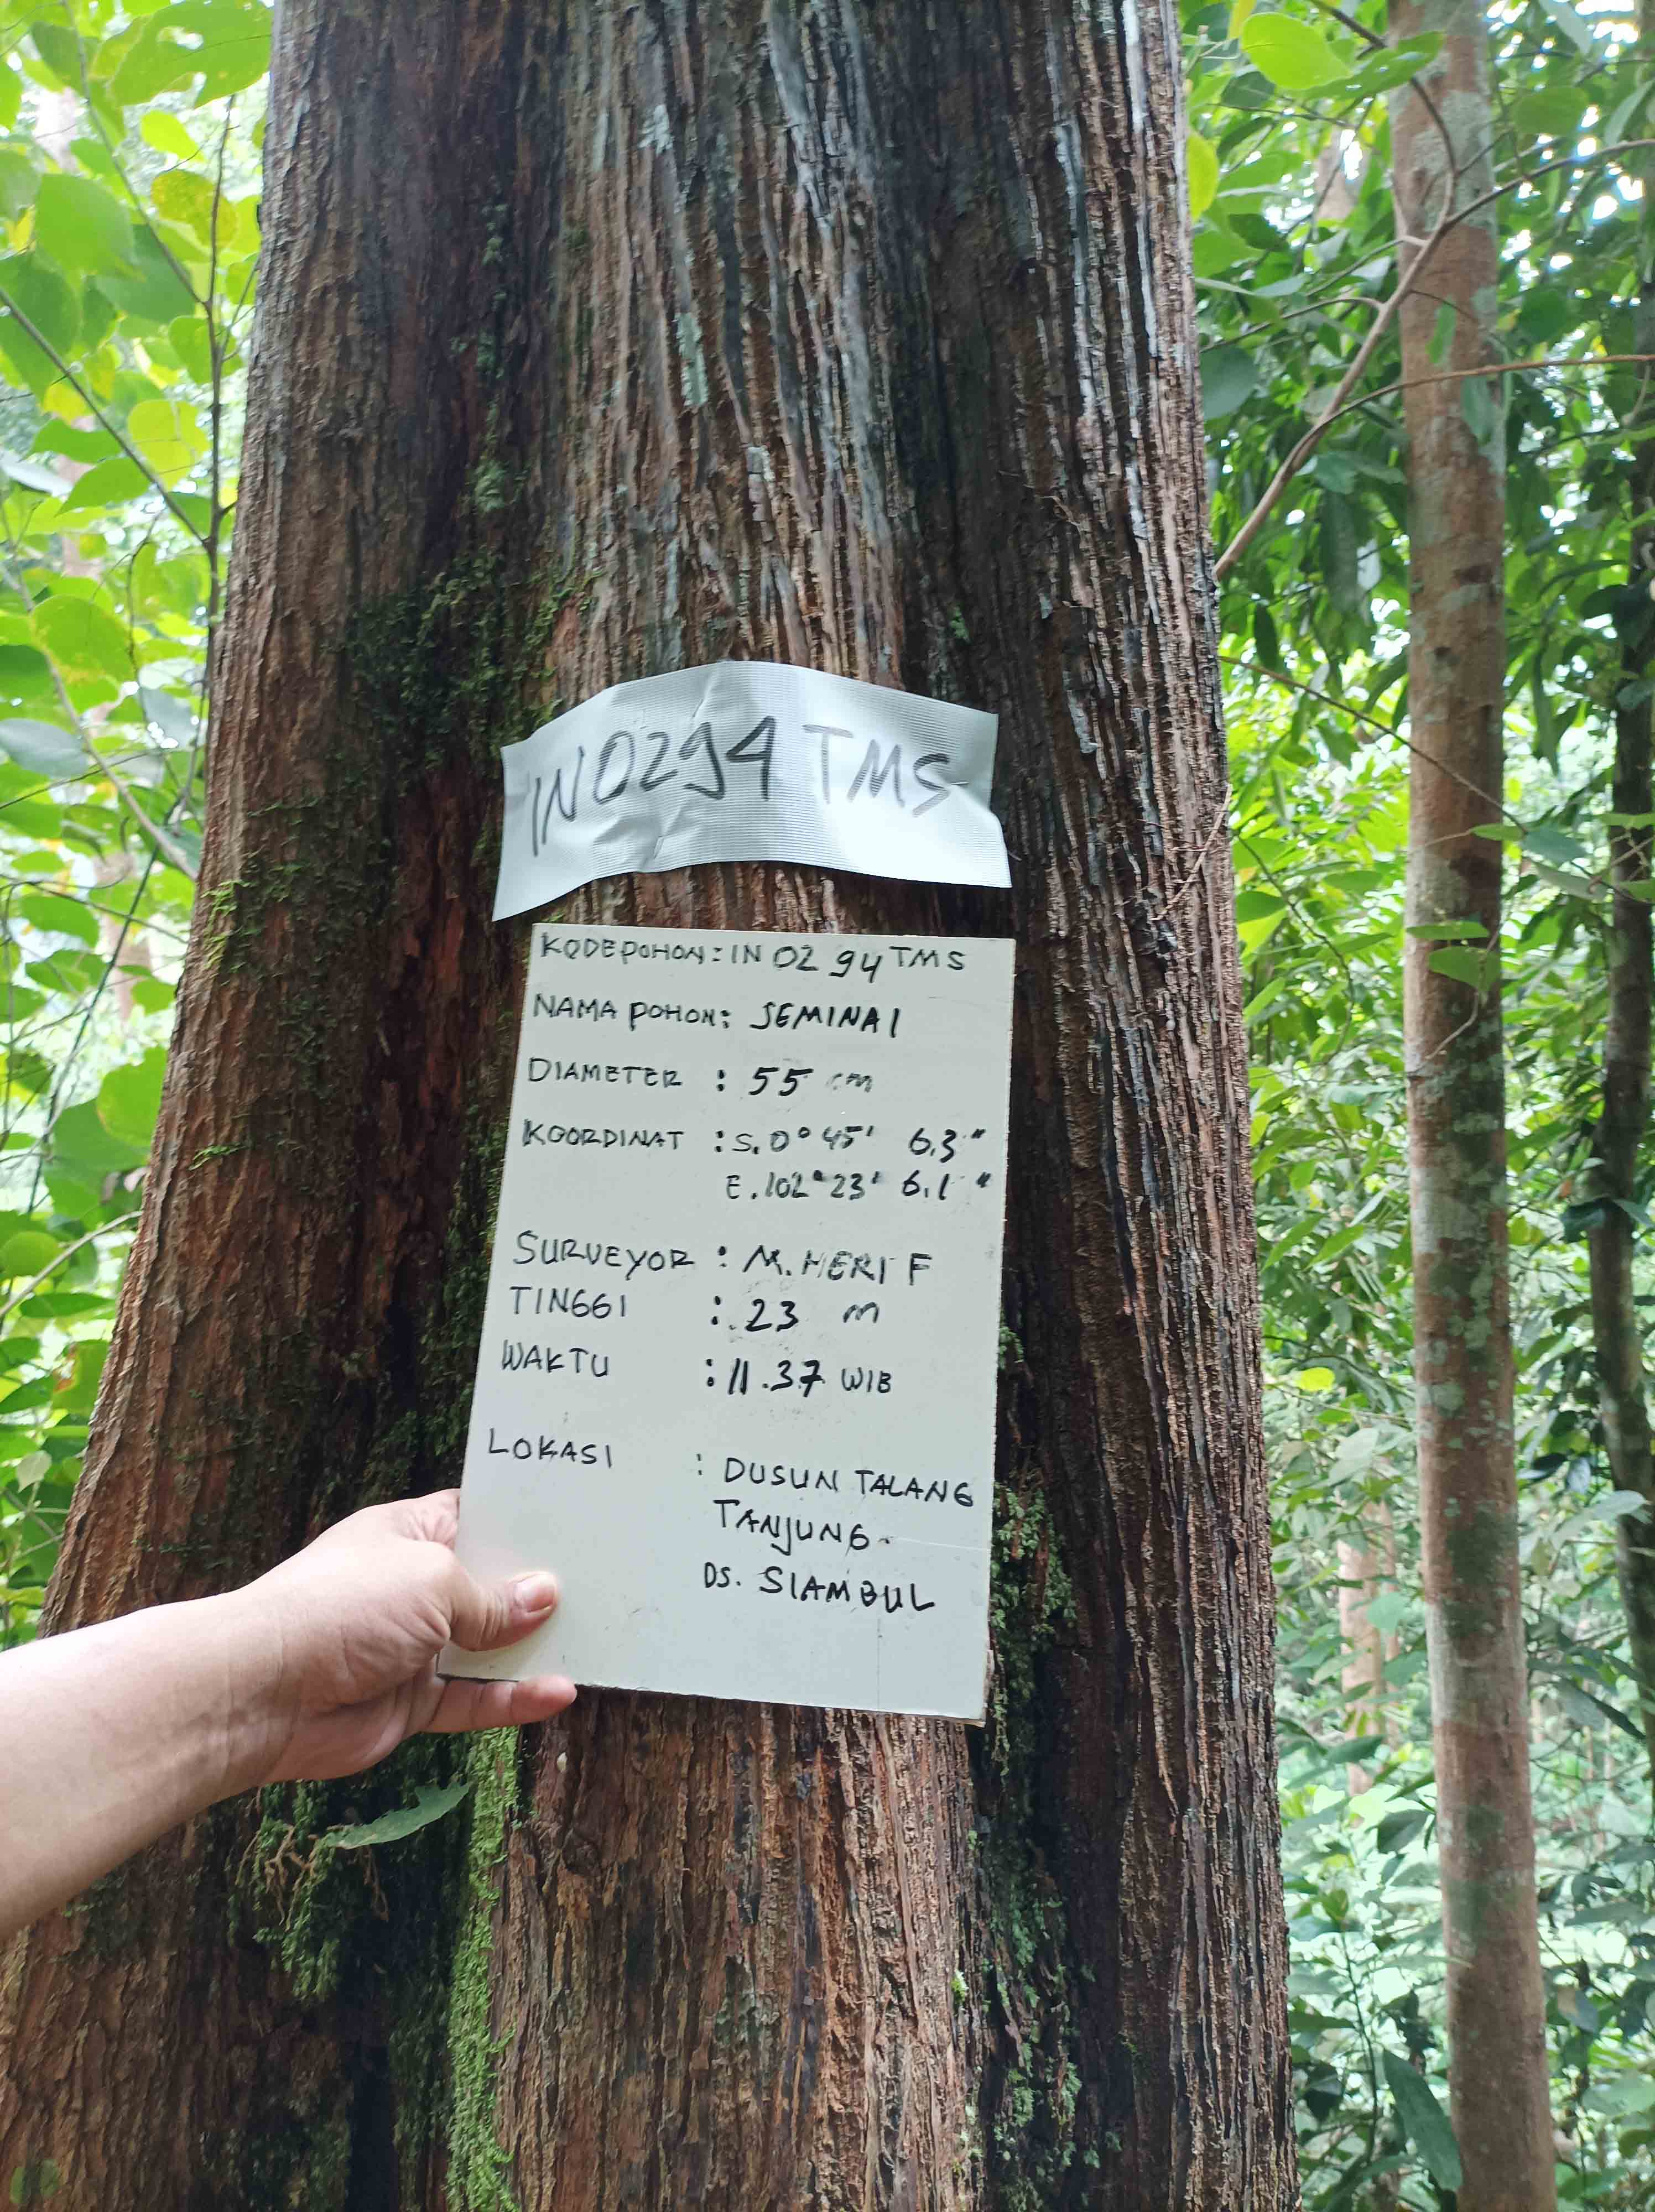 IN0294 TMS
KODEPOHON: IN 0294 TMS
NAMA POHON: SEMINAI
DIAMETER : 55 cm
KOORDINAT : S. 0° 45' 6.3"
E. 102° 23' 6.1"
SURVEYOR : M. HERI F
TINGGI : 23 m
WAKTU : 11.37 WIB
LOKASI : DUSUN TALANG
TANJUNG.
DS. SIAMBUL